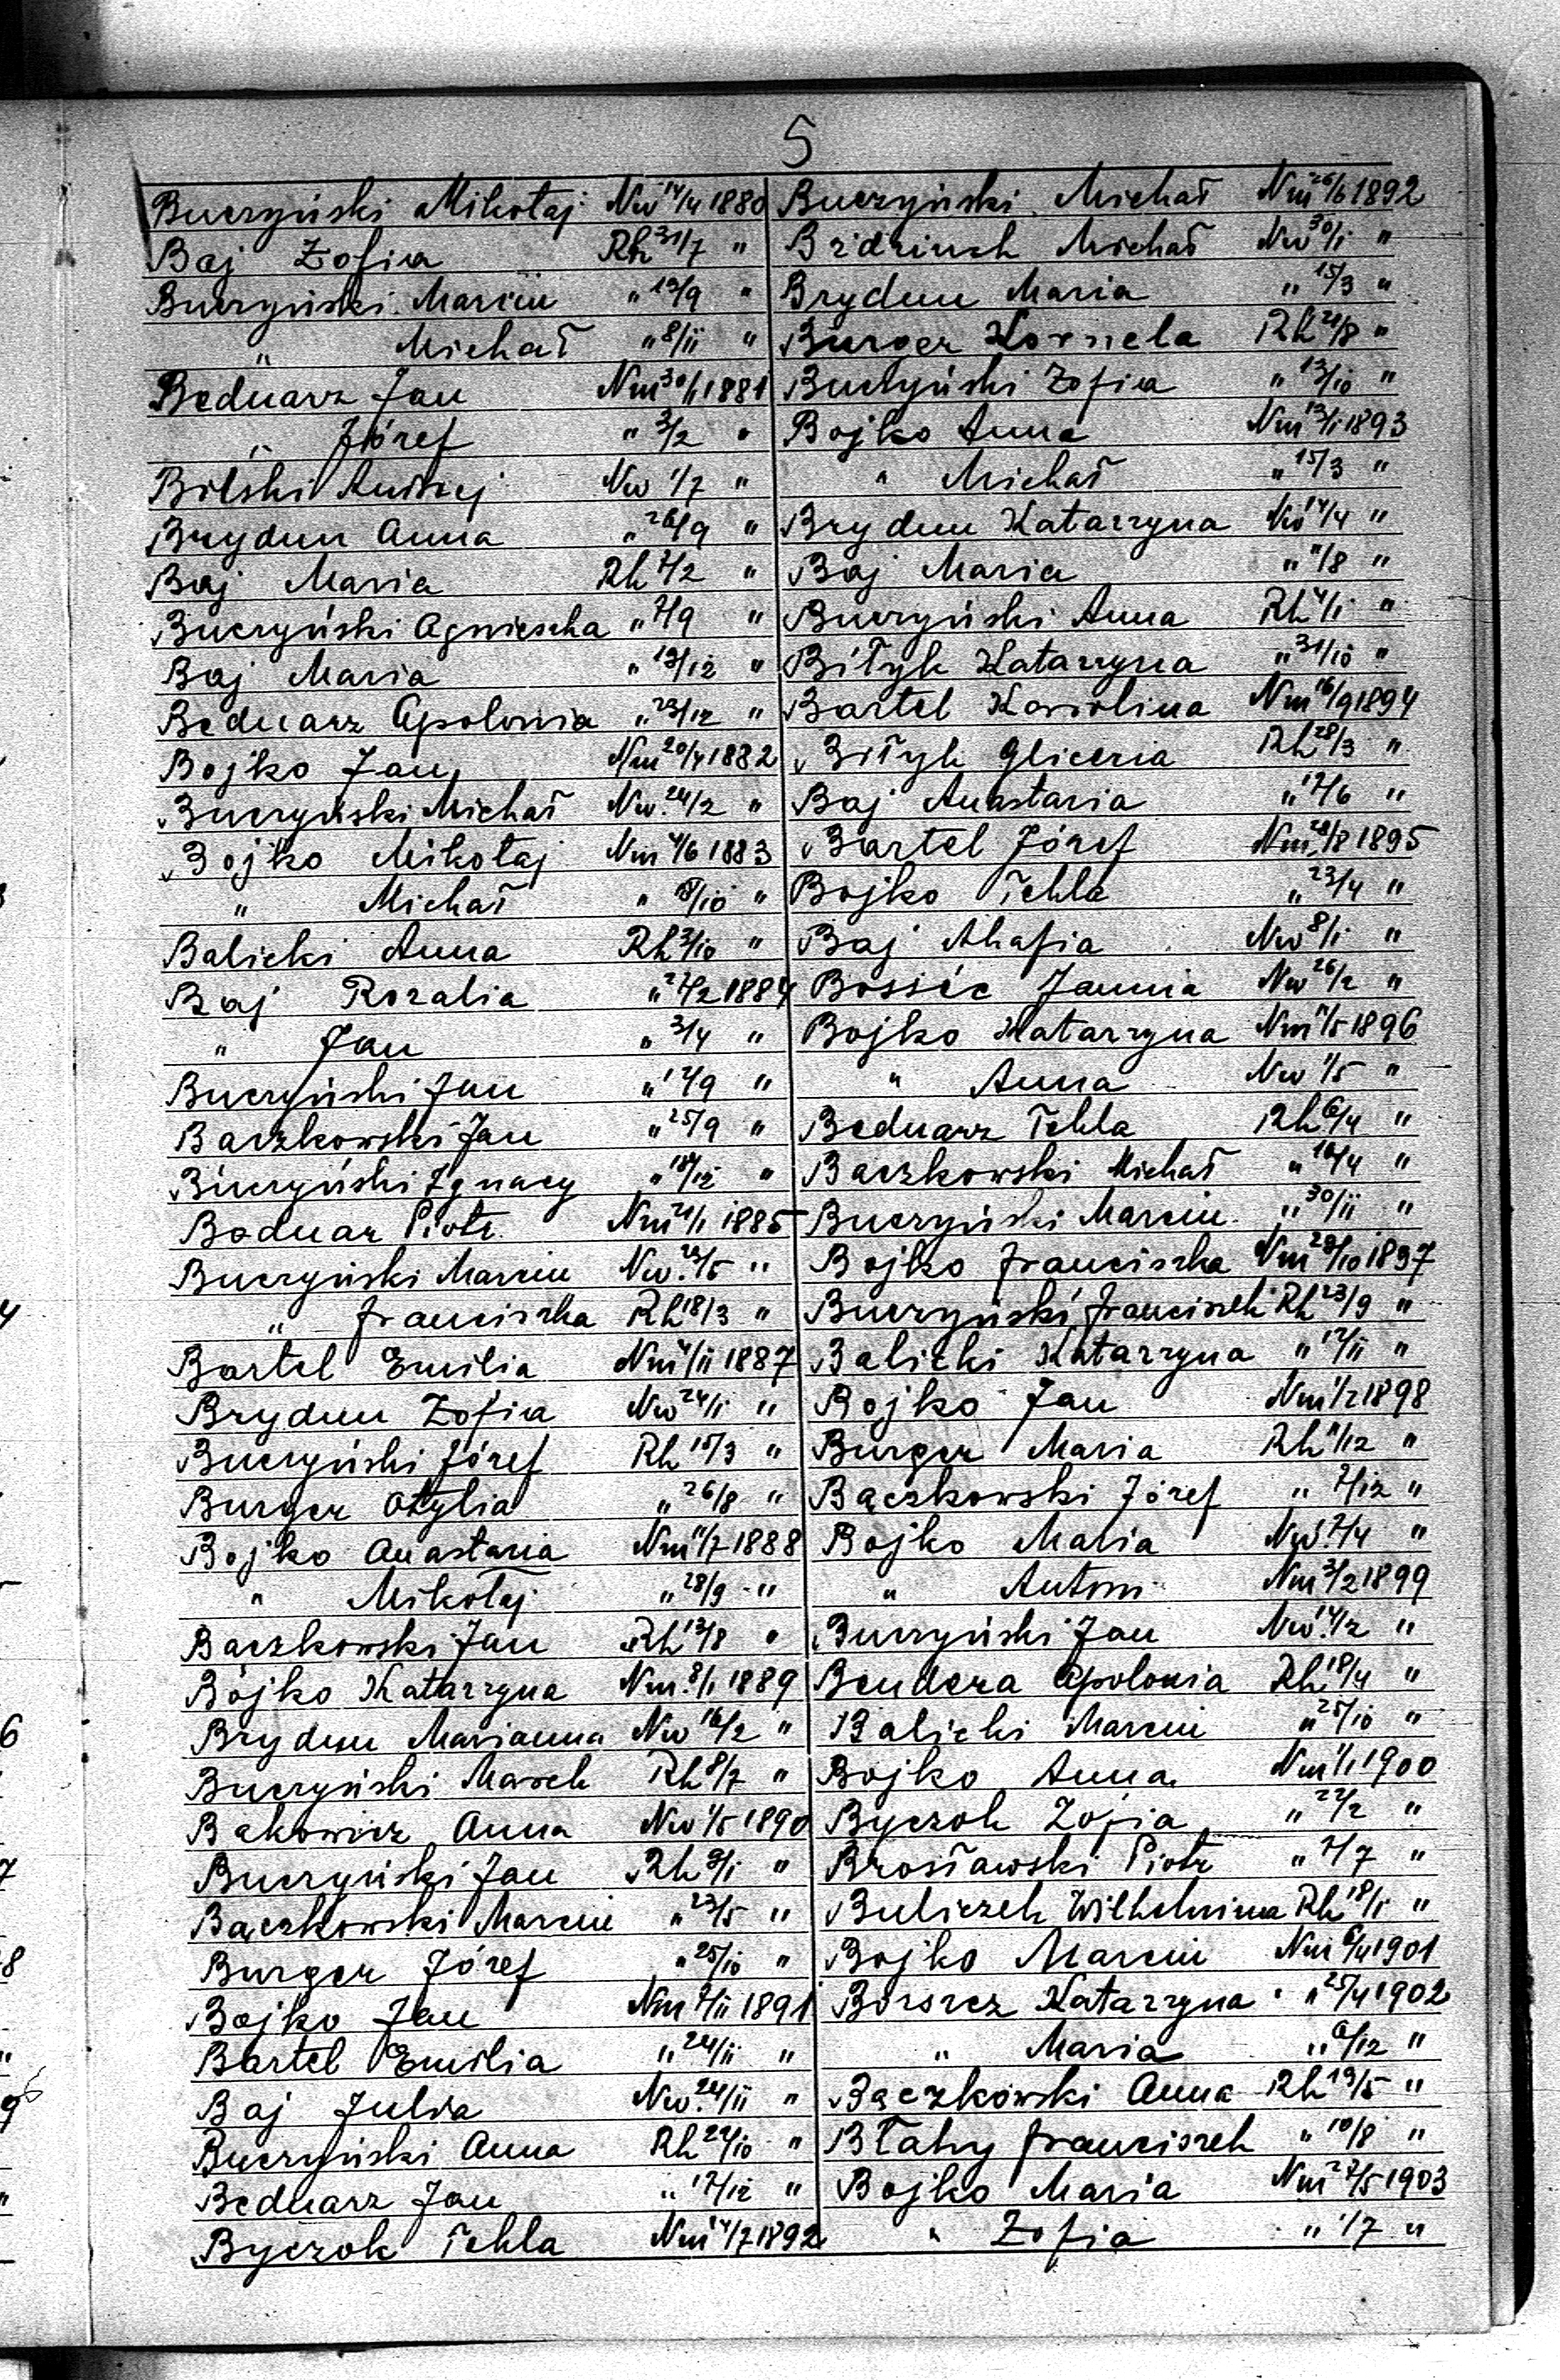 5
Buczyński Mikołaj Nw 14/4 1880
Baj Zofia Rh 31/7 "
Buczyński Marcin " 19/9 "
" Michał " 8/11 "
Bednarz Jan Nm 30/1 1881
" Józef " 3/2 "
Bilski Andrzej Nw 1/7 "
Brydun Anna " 26/9 "
Baj Maria Rh 7/2 "
Buczyński Agnieszka " 7/9 "
Baj Maria " 19/12 "
Bednarz Apolonia " 23/12 "
Bojko Jan Nm 20/4 1882
Buczyński Michał Nw. 24/2 "
Bojko Mikołaj Nm 4/6 1883
" Michał " 18/10 "
Balicki Anna Rh 3/10 "
Baj Rozalia " 27/2 1884
" Jan " 3/4 "
Buczyński Jan " 17/9 "
Baczkowski Jan " 25/9 "
Buczyński Ignacy " 18/12 "
Bednar Piotr Nm 21/1 1885
Buczyński Marcin Nw. 23/5 "
" Franciszka Rh 18/3 "
Bartel Emilia Nm 4/11 1887
Brydun Zofia Nw 24/1 "
Buczyński Józef Rh 15/3 "
Burger Otylia " 26/8 "
Bojko Anastazia Nm 11/7 1888
" Mikołaj " 28/9 "
Bączkowski Jan Rh 13/8 "
Bojko Katarzyna Nm. 8/1 1889
Brydun Marianna Nw 16/2 "
Buczyński Marek Rh 8/7 "
Bąkowicz Anna Nw 1/5 1890
Buczyński Jan Rh 9/1 "
Bączkowski Marcin " 23/5 "
Burger Józef " 25/10 "
Bojko Jan Nm 7/11 1891
Bartel Emilia " 24/11 "
Baj Julia Nw. 24/11 "
Buczyński Anna Rh 27/10 "
Bednarz Jan " 17/12 "
Byczok Tekla Nm 14/7 1892
Buczyński Michał Nm 26/6 1892
Michał Nw 30/1 "
Brydun Maria " 15/3 "
Burger Kornela Rh 21/8 "
Buczyński Zofia " 13/10 "
Bojko Anna Nm 13/1 1893
" Michał " 15/3 "
Brydun Katarzyna Nw 14/4 "
Baj Maria " 11/8 "
Buczyński Anna Rh 4/1 "
Biłyk Katarzyna " 31/10 "
Bartel Karolina Nm 16/9 1894
Biłyk Gliceria Rh 28/3 "
Baj Anastazia " 17/6 "
Bartel Józef Nm 28/8 1895
Bojko Tekla " 23/4 "
Baj Ahafia Nw 8/1 "
Bossic Jannia Nw 26/2 "
Bojko Katarzyna Nm 11/5 1896
" Anna Nw 1/5 "
Bednarz Tekla Rh 6/4 "
Baczkowski Michał " 16/4 "
Buczyński Marcin " 30/11 "
Bojko Franciszka Nm 28/10 1897
Buczyński Franciszek Rh 23/9 "
Balicki Katarzyna " 17/11 "
Bojko Jan Nm 1/2 1898
Burger Maria Rh 11/12 "
Bączkowski Józef " 7/12 "
Bojko Maria Nw. 7/4 "
" Antoni Nm 3/2 1899
Buczyński Jan Nw. 14/2 "
Bendera Apolonia Rh 18/4 "
Balicki Marcin " 25/10 "
Bojko Anna Nm 1/1 1900
Byczok Zofia " 22/2 "
Brosławski Piotr " 7/7 "
Buliczek Wilhelmina Rh 18/1 "
Bojko Marcin Nm 6/4 1901
Borsicz Katarzyna " 25/4 1902
" Maria " 6/12 "
Bączkowski Anna Rh 19/5 "
Błahy Franciszek " 10/8 "
Bojko Maria Nm 27/5 1903
" Zofia " 1/7 "